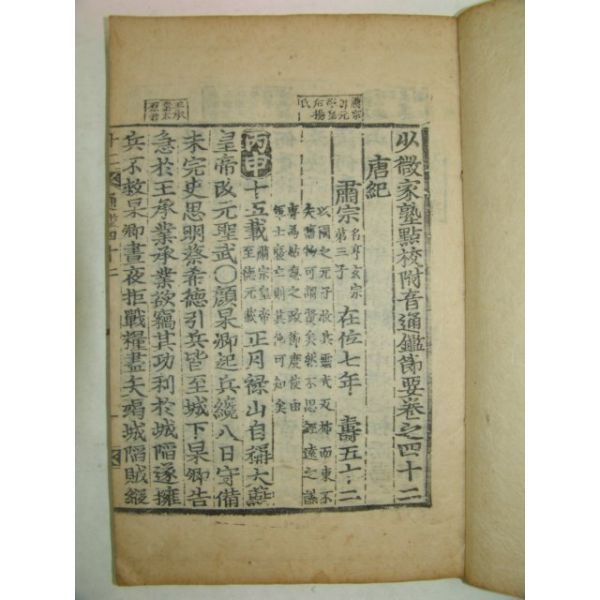 少微家塾點校附音通鑑節要卷之四十二
唐紀
肅宗 名亨玄宗第三子 在位七年 壽五十二
以國之元子故兵靈武反旆而東不
失舊物可謂賢矣然不思經遠之謀
專為姑息之政節度由
軍士廢立則其他可知矣
丙申 十五載 肅宗皇帝至德元載 正月祿山自稱大燕
皇帝改元聖武〇顔杲卿起兵纔八日守備
未完史思明蔡希德引兵皆至城下杲卿告
急於王承業承業欲竊其功利於城陷遂擁
兵不救杲卿晝夜拒戰糧盡矢竭城陷賊縱
通鑑四十二